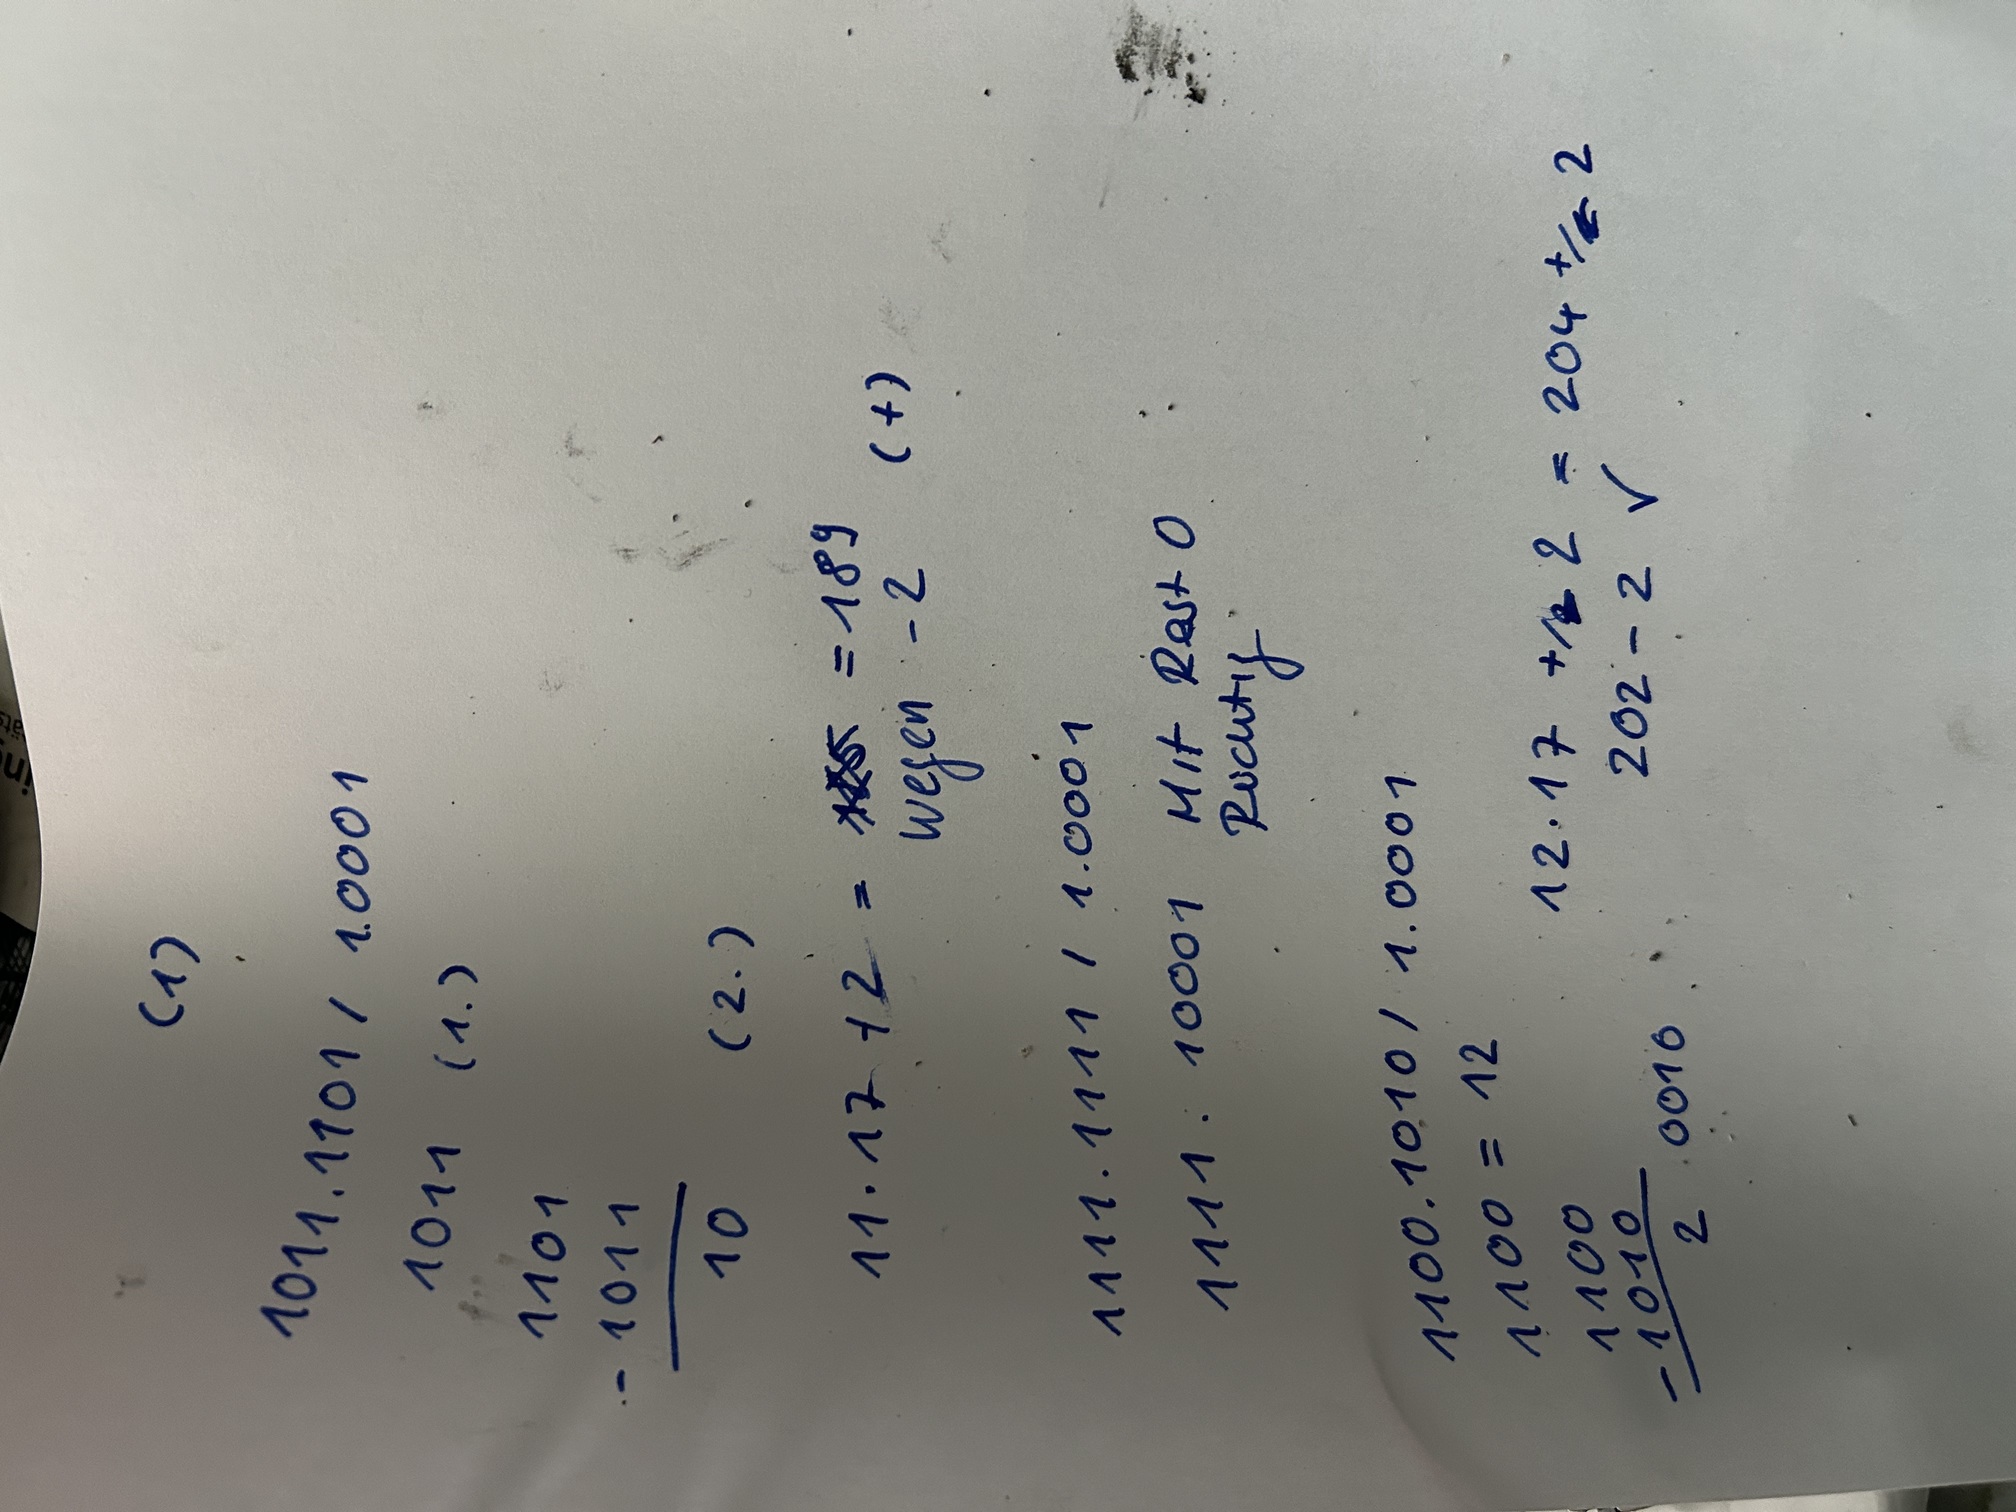 (1)
1011.1101 / 1.0001
1011 (1.)
1101
- 1011
10 (2.)
11.17 + 2 = = 189
wegen - 2 (+)
1111.1111 / 1.0001
1111 . 10001 Mit Rest 0
Richtig
1100.1010 / 1.0001
1100 = 12
1100
- 1010
2 0010
12.17 +/- 2 = 204 +/- 2
202 - 2 ✓